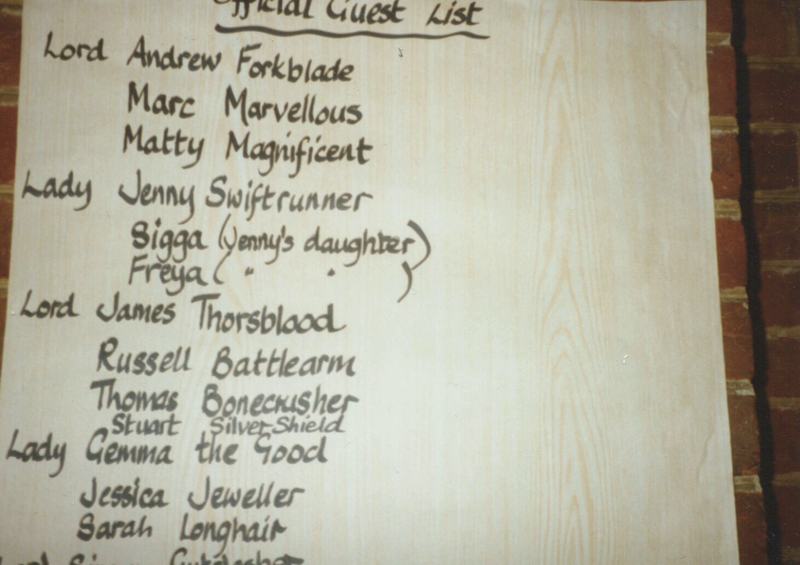 Official Guest List
Lord Andrew Forkblade
Marc Marvellous
Matty Magnificent
Lady Jenny Swiftrunner
Sigga (Jenny's daughter)
Freya ( " " )
Lord James Thorsblood
Russell Battlearm
Thomas Bonecrusher
Stuart Silver Shield
Lady Gemma the Good
Jessica Jeweller
Sarah Longhair
Lord